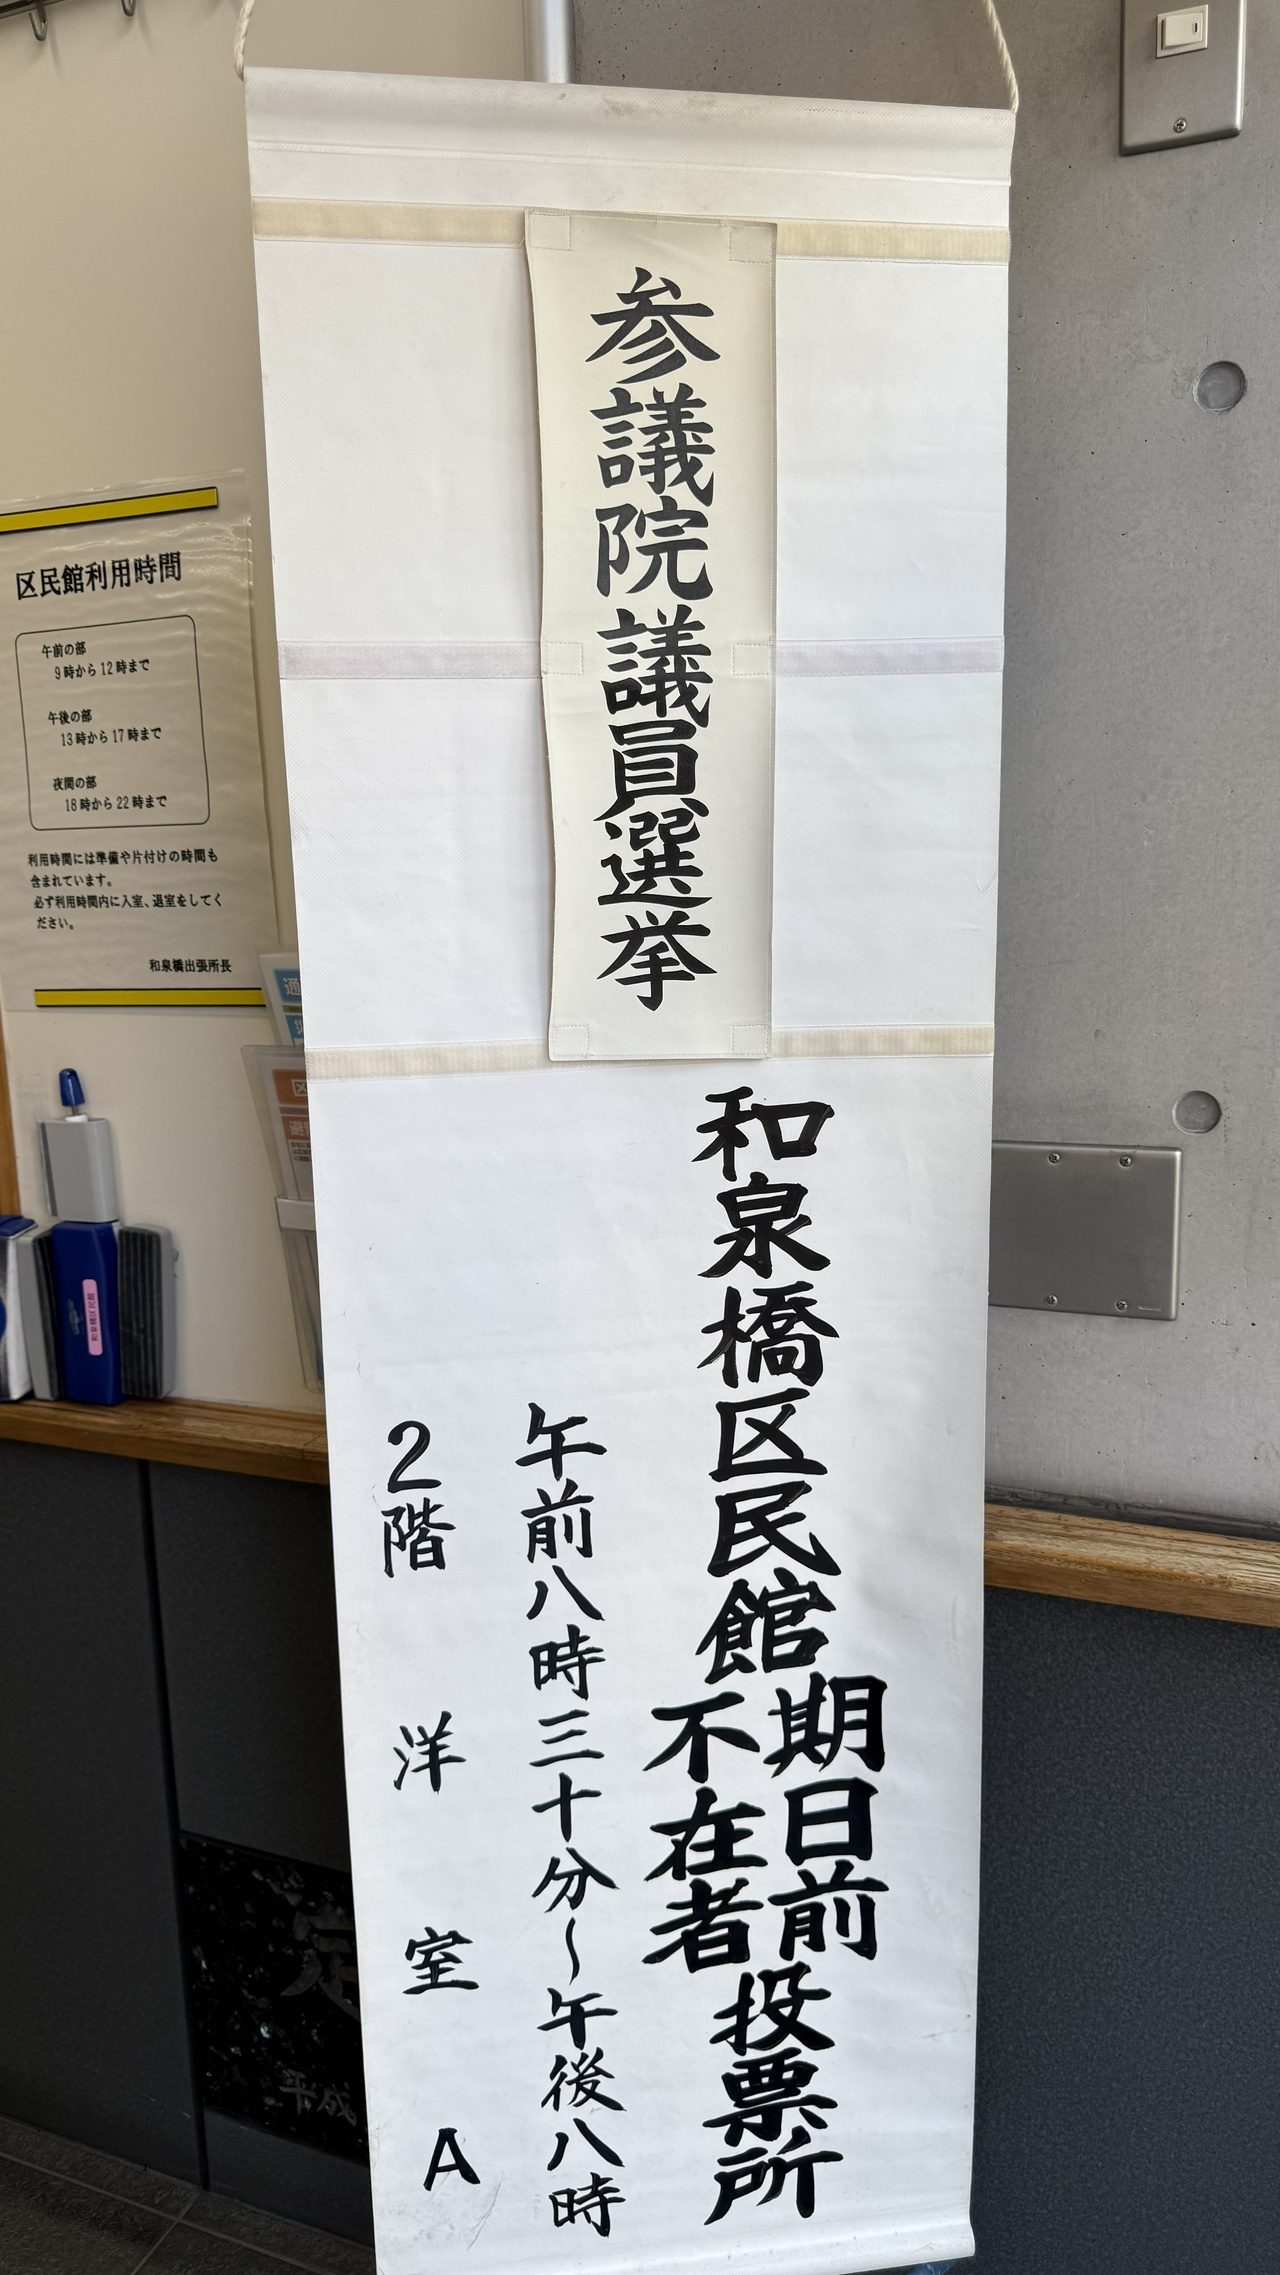 参議院議員選挙
和泉橋区民館
期日前
不在者
投票所
午前八時三十分~午後八時
2階 洋室A
区民館利用時間
午前の部
9時から12時まで
午後の部
13時から17時まで
夜間の部
18時から22時まで
利用時間には準備や片付けの時間も
含まれています。
必ず利用時間内に入室、退室をしてく
ださい。
和泉橋出張所長
和泉橋区民館
National
定
平成